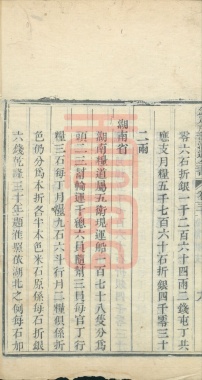 零六石折銀一千二百六十四兩二錢屯丁共
應支月糧五千七百六十石折銀四千零三十
二兩
湖南省
湖南糧道屬五衛現運船一百七十八隻分爲
頭二三幫輪運千總六員隨幫三員每官丁行
糧三石每丁月糧九石六斗行月二糧俱係折
色仍分爲本折各半本色米石原係每石折銀
六錢乾隆三十年題准照依湖北之例每石加